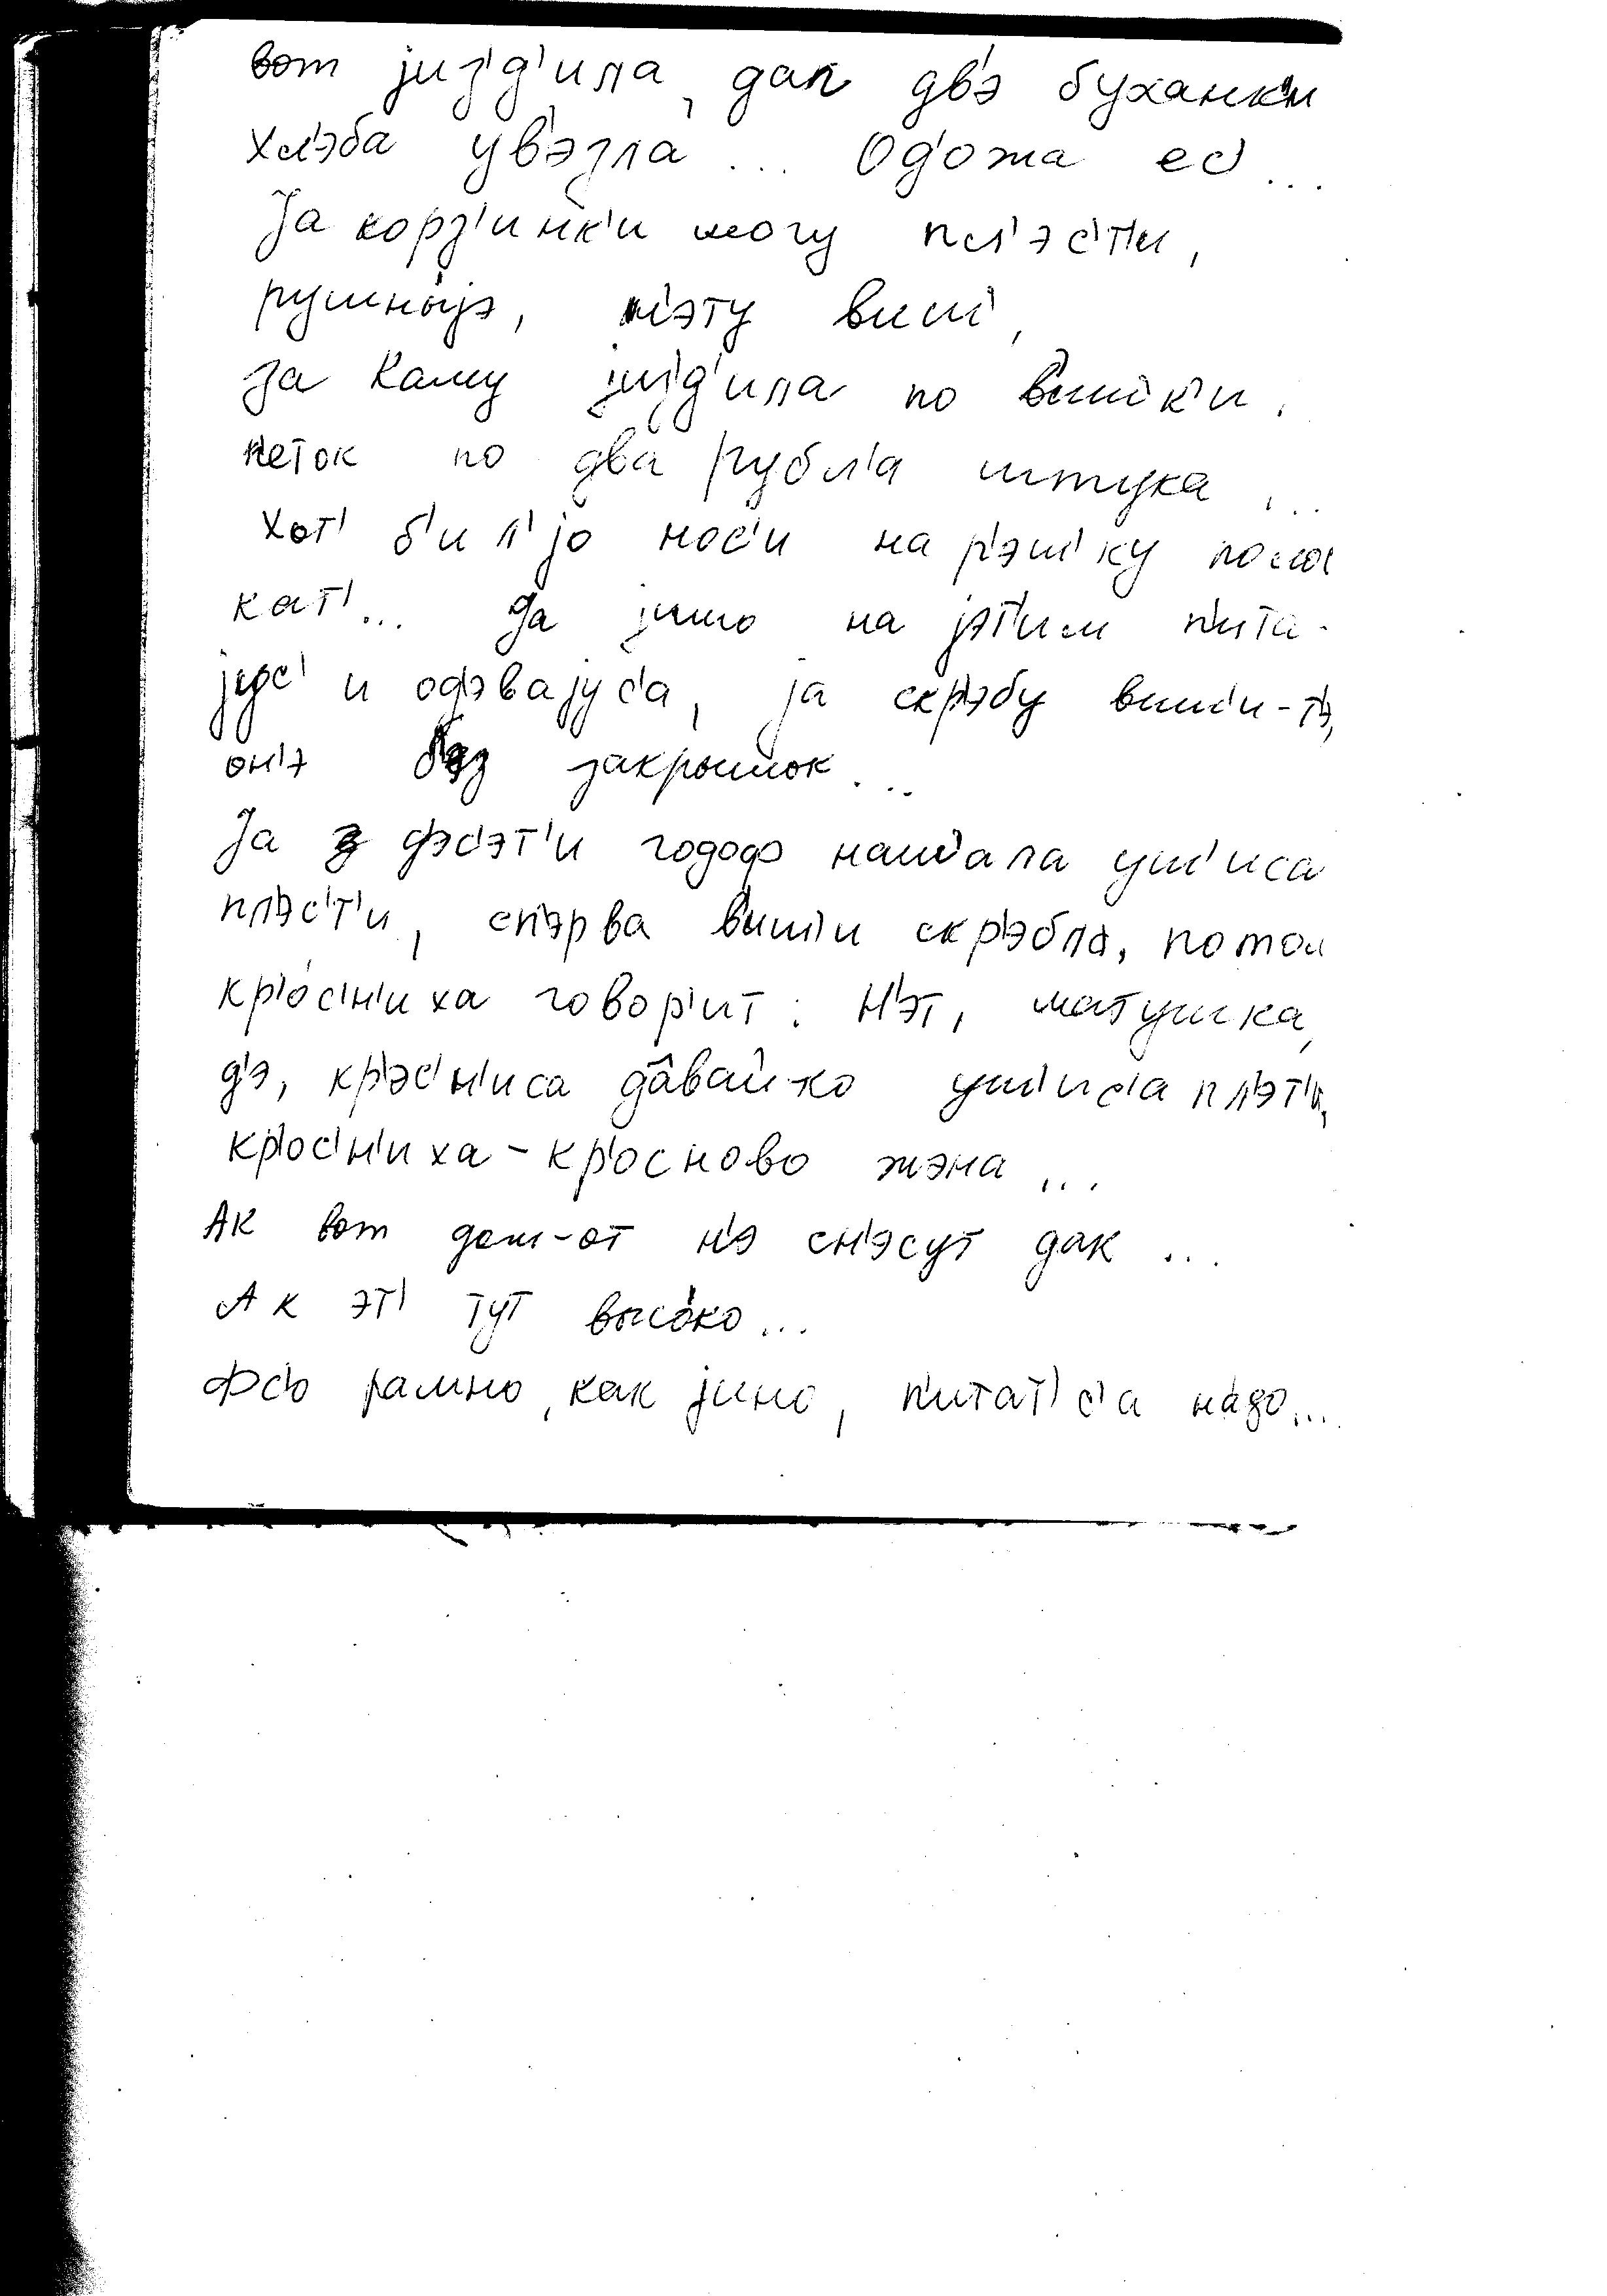 вот јиз'д'ила, дак дв'э буханк'и
хл'эба ув'эзла... Од'ожа ес'...
Ја корз'инк'и могу пл'эс'т'и,
рушныјэ, н'эту виш',
за Каму јиз'д'ила по виш'к'и.
п'еток по два рубл'а штука...
хот' б'ил'јо нос'и на р'эш'ку полос
кат'... Да јимо на јэт'им п'ита-
јус' и од'эвајус'а, ја скр'эбу виш'и-т'э,
он'э б'эз закрышок...
Ја з д'эс'эт'и годоф наш'ала уш'иса
пл'эс'т'и, сп'эрва виш'и скр'эбла, потом
кр'о́с'н'иха говор'ит: н'эт, матушка,
д'э, кр'эс'н'иса дава́й-ко уш'ис'а пл'эт'и,
кр'ос'н'иха - кр'осново жэна...
Ак вот дом-от н'э сн'эсут дак...
Ак эт' тут высо́ко...
Фс'о рамно, как јино, п'итат'с'а на́до...